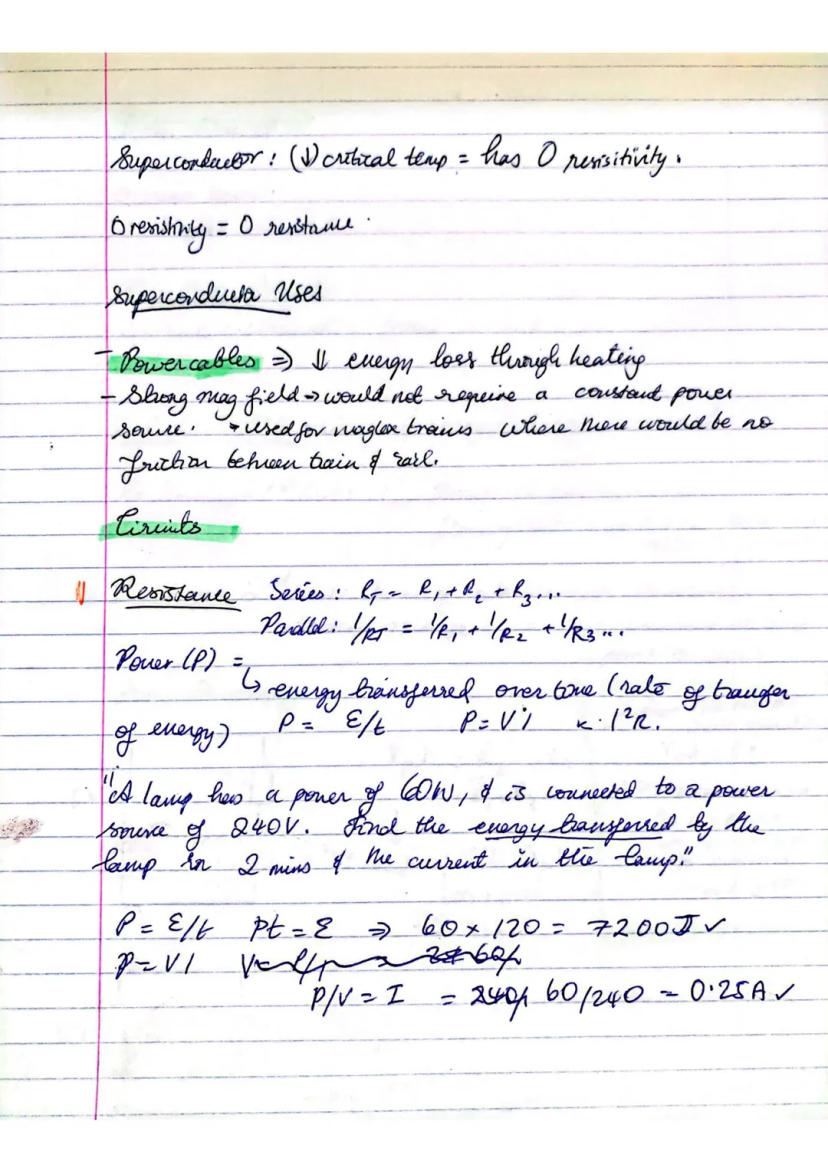 Superconductor: (↓) critical temp = has 0 resisitivity.
0 resistivity = 0 resistance.
Superconductor Uses
- Power cables ⇒ ↓ energy loss through heating
- Strong mag field → would not require a constant power
source. → used for maglev trains where there would be no
friction between train & rail.
Circuits
Resistance Series: RT = R1 + R2 + R3...
Parallel: 1/RT = 1/R1 + 1/R2 + 1/R3...
Power (P) =
↳ energy transferred over time (rate of transfer
of energy) P = E/t P = VI I²R.
"A lamp has a power of 60W, & is connected to a power
source of 240V. Find the energy transferred by the
lamp in 2 mins & the current in the lamp."
P = E/t Pt = E ⇒ 60 × 120 = 7200J ✓
P = VI
P/V = I = 60/240 = 0.25A ✓